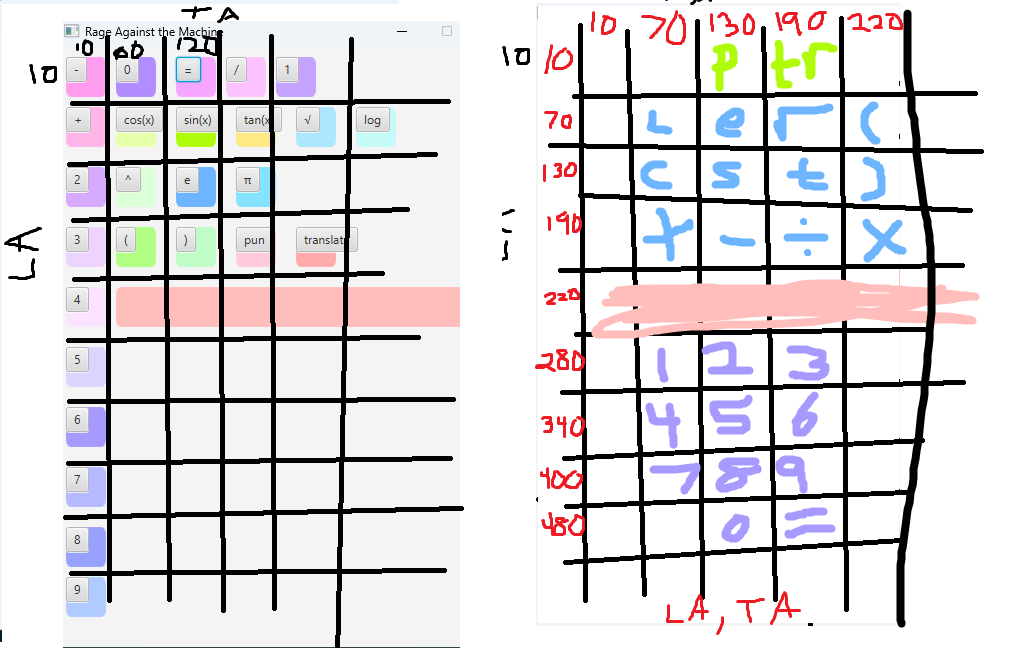 TA
Rage Against the Machine
10 60 120
10 - 0 = / 1
+ cos(x) sin(x) tan(x √ log
2 ^ e π
LA
3 ( ) pun translate
4
5
6
7
8
9
10 70 130 190 220
10 10 p tr
70 L e √ (
130 c s t )
190 + - ÷ x
220
280 1 2 3
340 4 5 6
400 7 8 9
480 0 =
LA, TA